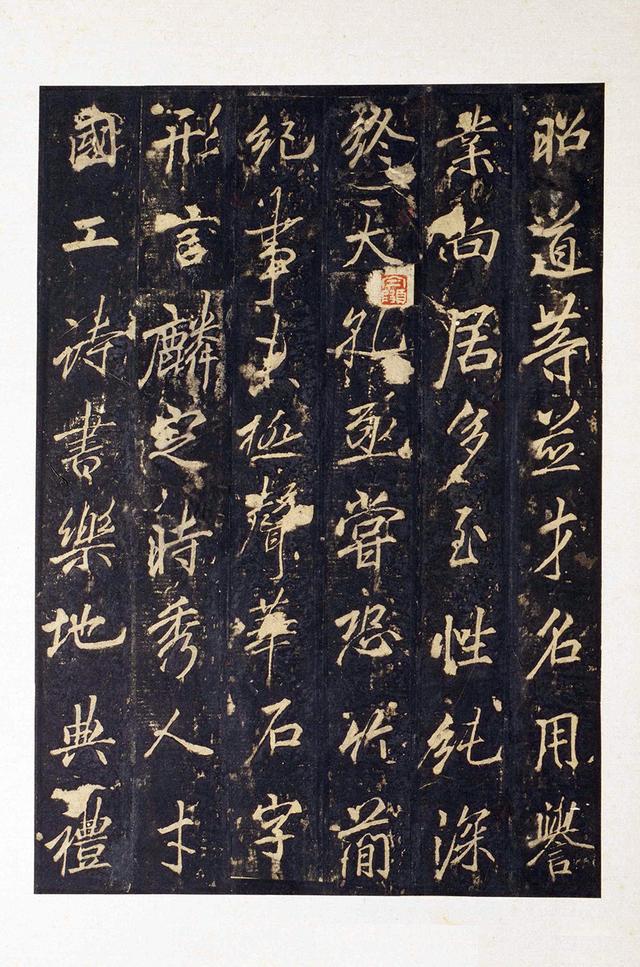 昭道等並才名用譽
業尚居多至性純深
終天孔亟嘗恐竹簡
紀事未極聲華石字
形言麟定時秀人才
國工詩書樂地典禮